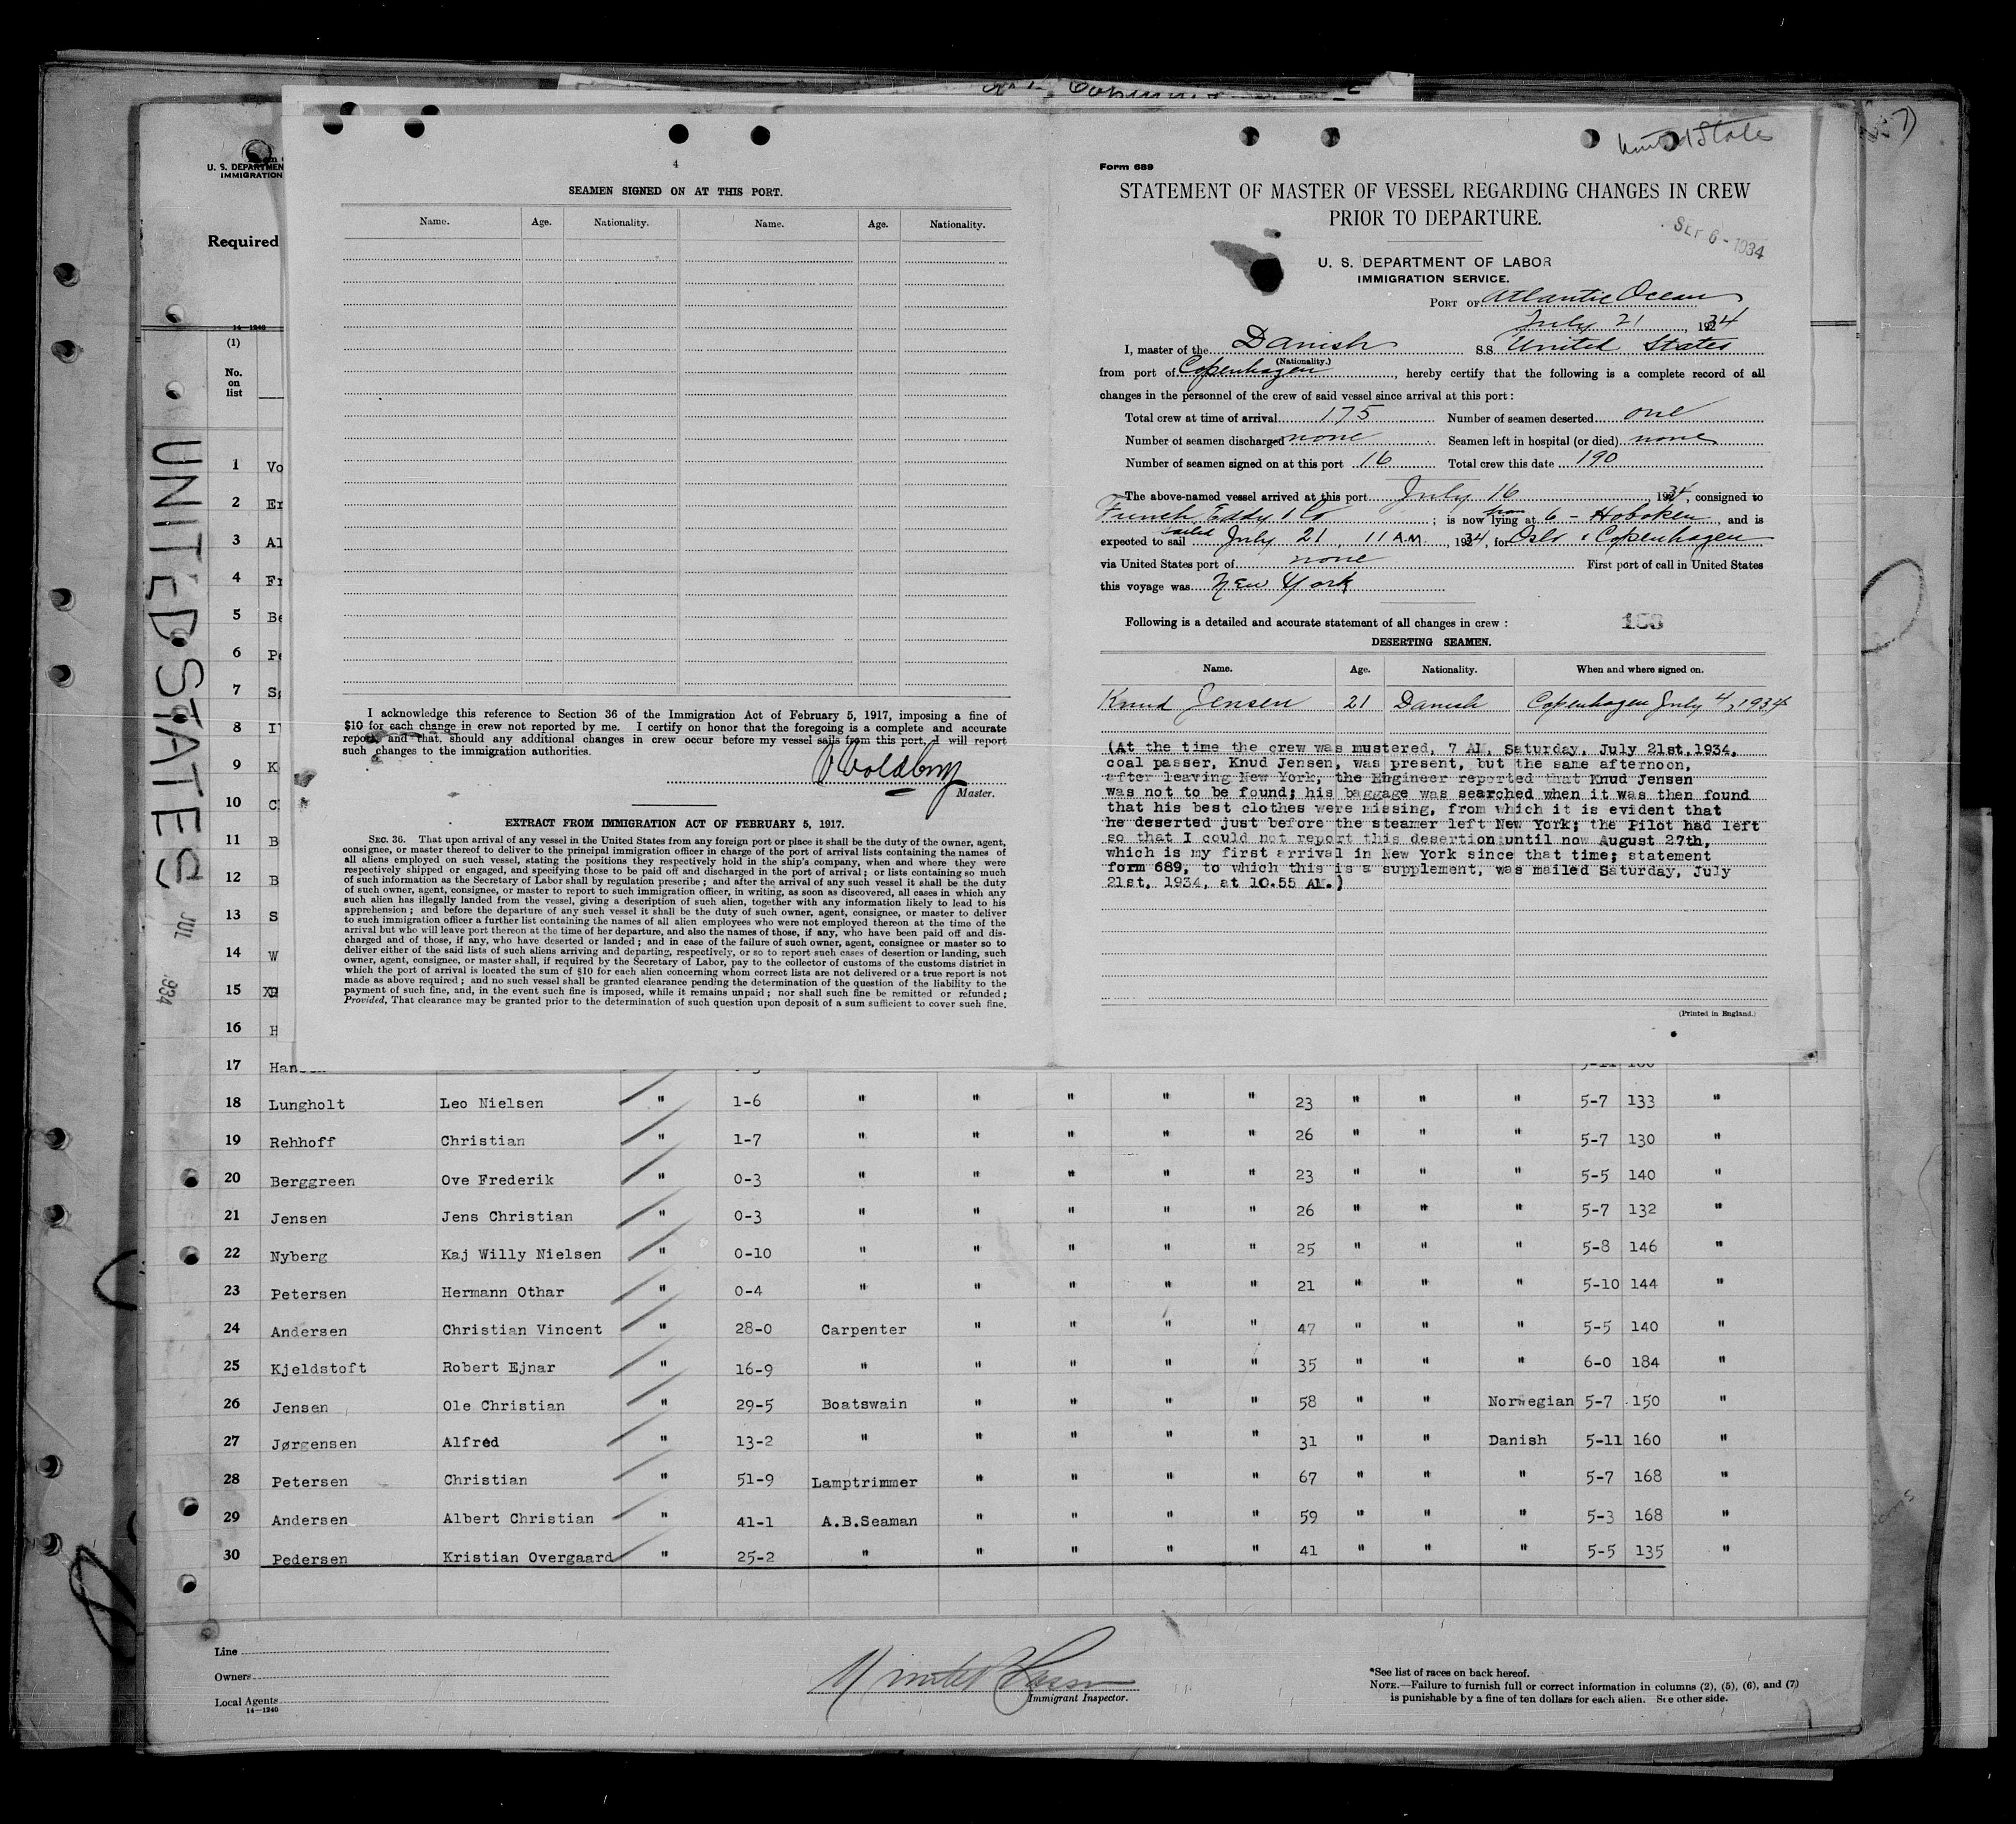 U. S. DEPARTMEN
IMMIGRATION
Required
14—1240
(1)
No.
on
list
UNITED STATES
JUL 1934
1 Vo
2 Er
3 Al
4 Fr
5 Be
6 Pe
7 S
8 I
9 K
10 C
11 B
12 B
13 S
14 W
15
16 H
4
SEAMEN SIGNED ON AT THIS PORT.
Name. Age. Nationality. Name. Age. Nationality.
I acknowledge this reference to Section 36 of the Immigration Act of February 5, 1917, imposing a fine of
$10 for each change in crew not reported by me. I certify on honor that the foregoing is a complete and accurate
report and that, should any additional changes in crew occur before my vessel sails from this port, I will report
such changes to the immigration authorities.
Master.
EXTRACT FROM IMMIGRATION ACT OF FEBRUARY 5, 1917.
SEC. 36. That upon arrival of any vessel in the United States from any foreign port or place it shall be the duty of the owner, agent,
consignee, or master thereof to deliver to the principal immigration officer in charge of the port of arrival lists containing the names of
all aliens employed on such vessel, stating the positions they respectively hold in the ship's company, when and where they were
respectively shipped or engaged, and specifying those to be paid off and discharged in the port of arrival; or lists containing so much
of such information as the Secretary of Labor shall by regulation prescribe; and after the arrival of any such vessel it shall be the duty
of such owner, agent, consignee, or master to report to such immigration officer, in writing, as soon as discovered, all cases in which any
such alien has illegally landed from the vessel, giving a description of such alien, together with any information likely to lead to his
apprehension; and before the departure of any such vessel it shall be the duty of such owner, agent, consignee, or master to deliver
to such immigration officer a further list containing the names of all alien employees who were not employed thereon at the time of the
arrival but who will leave port thereon at the time of her departure, and also the names of those, if any, who have been paid off and dis-
charged and of those, if any, who have deserted or landed; and in case of the failure of such owner, agent, consignee or master so to
deliver either of the said lists of such aliens arriving and departing, respectively, or so to report such cases of desertion or landing, such
owner, agent, consignee, or master shall, if required by the Secretary of Labor, pay to the collector of customs of the customs district in
which the port of arrival is located the sum of $10 for each alien concerning whom correct lists are not delivered or a true report is not
made as above required; and no such vessel shall be granted clearance pending the determination of the question of the liability to the
payment of such fine, and, in the event such fine is imposed, while it remains unpaid; nor shall such fine be remitted or refunded;
Provided, That clearance may be granted prior to the determination of such question upon deposit of a sum sufficient to cover such fine.
United States
Form 689
STATEMENT OF MASTER OF VESSEL REGARDING CHANGES IN CREW
PRIOR TO DEPARTURE.
SEP 6 - 1934
U. S. DEPARTMENT OF LABOR
IMMIGRATION SERVICE.
PORT OF Atlantic Ocean
July 21, 1934
I, master of the Danish S.S. United States
(Nationality.)
from port of Copenhagen, hereby certify that the following is a complete record of all
changes in the personnel of the crew of said vessel since arrival at this port:
Total crew at time of arrival 175 Number of seamen deserted one
Number of seamen discharged none Seamen left in hospital (or died) none
Number of seamen signed on at this port 16 Total crew this date 190
The above-named vessel arrived at this port July 16 1934, consigned to
Funch, Eddy & Co; is now lying at from 6 - Hoboken, and is
expected to sail sailed July 21, 11 A.M., 1934, for Oslo & Copenhagen
via United States port of none First port of call in United States
this voyage was New York
Following is a detailed and accurate statement of all changes in crew:
DESERTING SEAMEN.
Name. Age. Nationality. When and where signed on.
Knud Jensen 21 Danish Copenhagen July 4, 1934
(At the time the crew was mustered, 7 AM, Saturday, July 21st,1934,
coal passer, Knud Jensen, was present, but the same afternoon,
after leaving New York, the Engineer reported that Knud Jensen
was not to be found; his baggage was searched when it was then found
that his best clothes were missing, from which it is evident that
he deserted just before the steamer left New York; the Pilot had left
so that I could not report this desertion until now August 27th,
which is my first arrival in New York since that time; statement
form 689, to which this is a supplement, was mailed Saturday, July
21st, 1934, at 10.55 AM.)
(Printed in England.)
17 Han
18 Lungholt Leo Nielsen " 1-6 " " " " " 23 " " " 5-7 133 "
19 Rehhoff Christian " 1-7 " " " " " 26 " " " 5-7 130 "
20 Berggreen Ove Frederik " 0-3 " " " " " 23 " " " 5-5 140 "
21 Jensen Jens Christian " 0-3 " " " " " 26 " " " 5-7 132 "
22 Nyberg Kaj Willy Nielsen " 0-10 " " " " " 25 " " " 5-8 146 "
23 Petersen Hermann Othar " 0-4 " " " " " 21 " " " 5-10 144 "
24 Andersen Christian Vincent " 28-0 Carpenter " " " " 47 " " " 5-5 140 "
25 Kjeldstoft Robert Ejnar " 16-9 " " " " " 35 " " " 6-0 184 "
26 Jensen Ole Christian " 29-5 Boatswain " " " " 58 " " Norwegian 5-7 150 "
27 Jørgensen Alfred " 13-2 " " " " " 31 " " Danish 5-11 160 "
28 Petersen Christian " 51-9 Lamptrimmer " " " " 67 " " " 5-7 168 "
29 Andersen Albert Christian " 41-1 A.B.Seaman " " " " 59 " " " 5-3 168 "
30 Pedersen Kristian Overgaard " 25-2 " " " " " 41 " " " 5-5 135 "
Line
Owners
Local Agents
14—1240
Immigrant Inspector.
*See list of races on back hereof.
NOTE.—Failure to furnish full or correct information in columns (2), (5), (6), and (7)
is punishable by a fine of ten dollars for each alien. See other side.